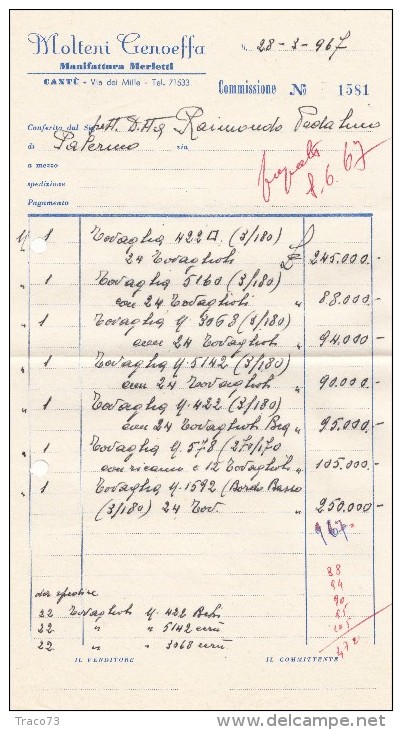 Molteni Genoeffa
N. 28-3-967
Manifattura Merletti
CANTÙ - Via dei Mille - Tel. 71533
Commissione № 1581
Conferito dal Sig. Spett. Ditta Raimondo
di Palermo via
a mezzo
pagato
spedizione
8.6.67
Pagamento
1 Tovaglia 422 □ (3/180)
24 Tovaglioli £ 245.000.-
" 1 Tovaglia 5160 (3/180)
con 24 Tovaglioli " 88.000.-
" 1 Tovaglia 3068 (3/180)
con 24 Tovaglioli " 94.000-
" 1 Tovaglia 5142 (3/180)
con 24 Tovaglioli " 90.000.-
" 1 Tovaglia 422 (3/180)
con 24 Tovaglioli " 95.000.-
1 Tovaglia 578 (270/170
con ricamo e 12 Tovaglioli " 105.000-
" 1 Tovaglia 1592 (Bordo Basso
(3/180) 24 Tov. " 250.000-
967.
88
94
da spedire 90
22 Tovaglioli 422 95
22 " " 5142 105
22 " " 3068 472
IL VENDITORE IL COMMITTENTE
Traco73
www.delcampe.net